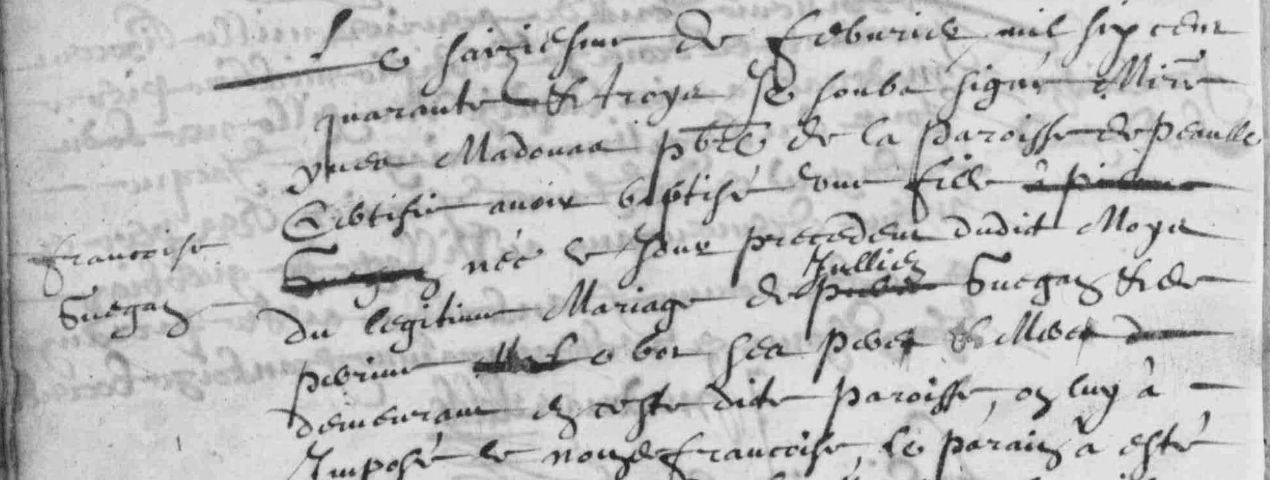 Le saiziesme de febvrier mil six cent
quarante & troys Je soubs signé Mire
yves Madouas pbre de la paroisse de peaulle
Certifie avoir baptisé une fille
françoise
née le Jour precedent dudit Moys
Guegan
du legitime Mariage de Jullien Guegan & de
perrine Le bot ses pere & Mere
demeurant en ceste dite paroisse, on luy à
Imposé le nom de françoise, le parain à esté